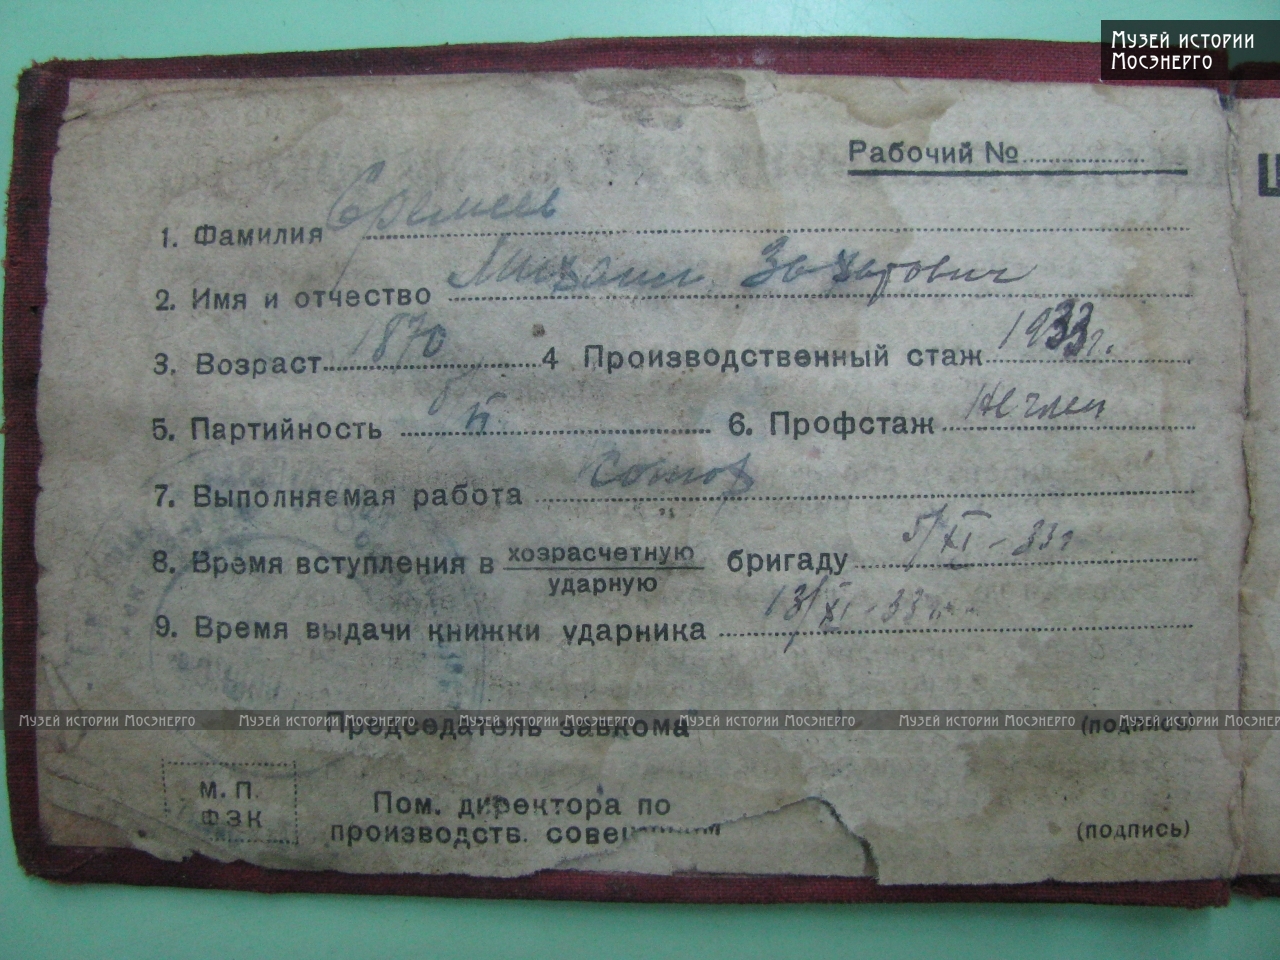 Музей истории
Мосэнерго
Рабочий №
1. Фамилия Еремеев
2. Имя и отчество Михаил Захарович
3. Возраст 1870 4 Производственный стаж 1933г.
5. Партийность б/п 6. Профстаж Не член
7. Выполняемая работа
8. Время вступления в хозрасчетную
ударную бригаду 5/XI-33г
9. Время выдачи книжки ударника 13/XI-33г.
Музей истории Мосэнерго Музей истории Мосэнерго Музей истории Мосэнерго Музей истории Мосэнерго Музей истории Мосэнерго Музей истории Мосэнерго
Председатель завкома (подпись)
М. П.
ФЗК
Пом. директора по
производств. совещаниям (подпись)